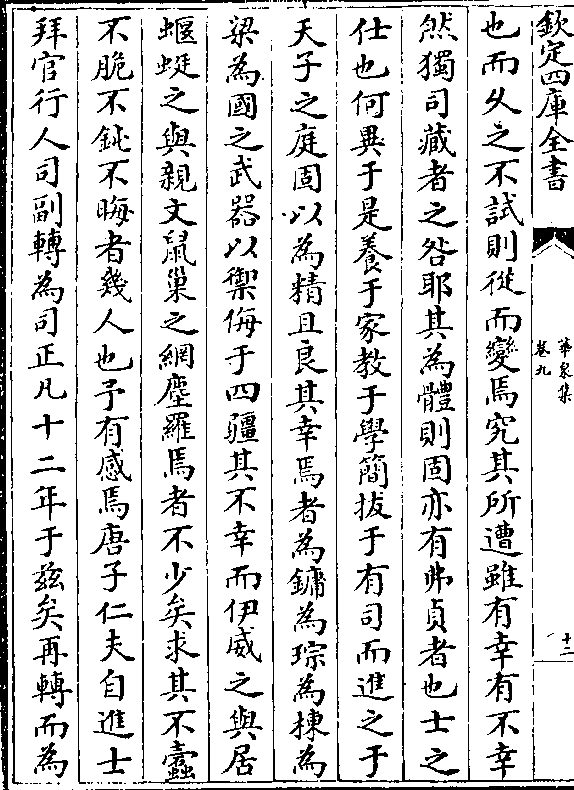 欽定四庫全書
華泉集
卷九
十二
也而久之不試則從而變焉究其所遭雖有幸有不幸
然獨司藏者之咎耶其為體則固亦有弗貞者也士之
仕也何異于是養于家教于學簡拔于有司而進之于
天子之庭固以為精且良其幸焉者為鏞為琮為棟為
梁為國之武器以禦侮于四疆其不幸而伊威之與居
蝘蜓之與親文鼠巢之網塵羅焉者不少矣求其不蠹
不脆不鈍不晦者幾人也予有感焉唐子仁夫自進士
拜官行人司副轉為司正凡十二年于茲矣再轉而為